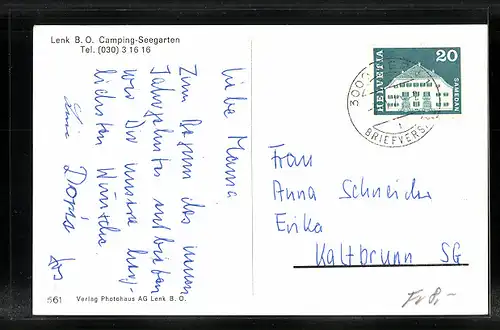 Lenk B. O. Camping-Seegarten
Tel. (030) 3 16 16
Liebe Mama
Zum Beginn des neuen
Jahrzehntes entbieten
wir Dir unsere herz-
lichsten Wünsche.
Doris
561
Verlag Photohaus AG Lenk B. O.
HELVETIA
20
SAMEDAN
3000
BRIEFVERS
Frau
Anna Schneider
Erika
Kaltbrunn SG
Fr 8,-